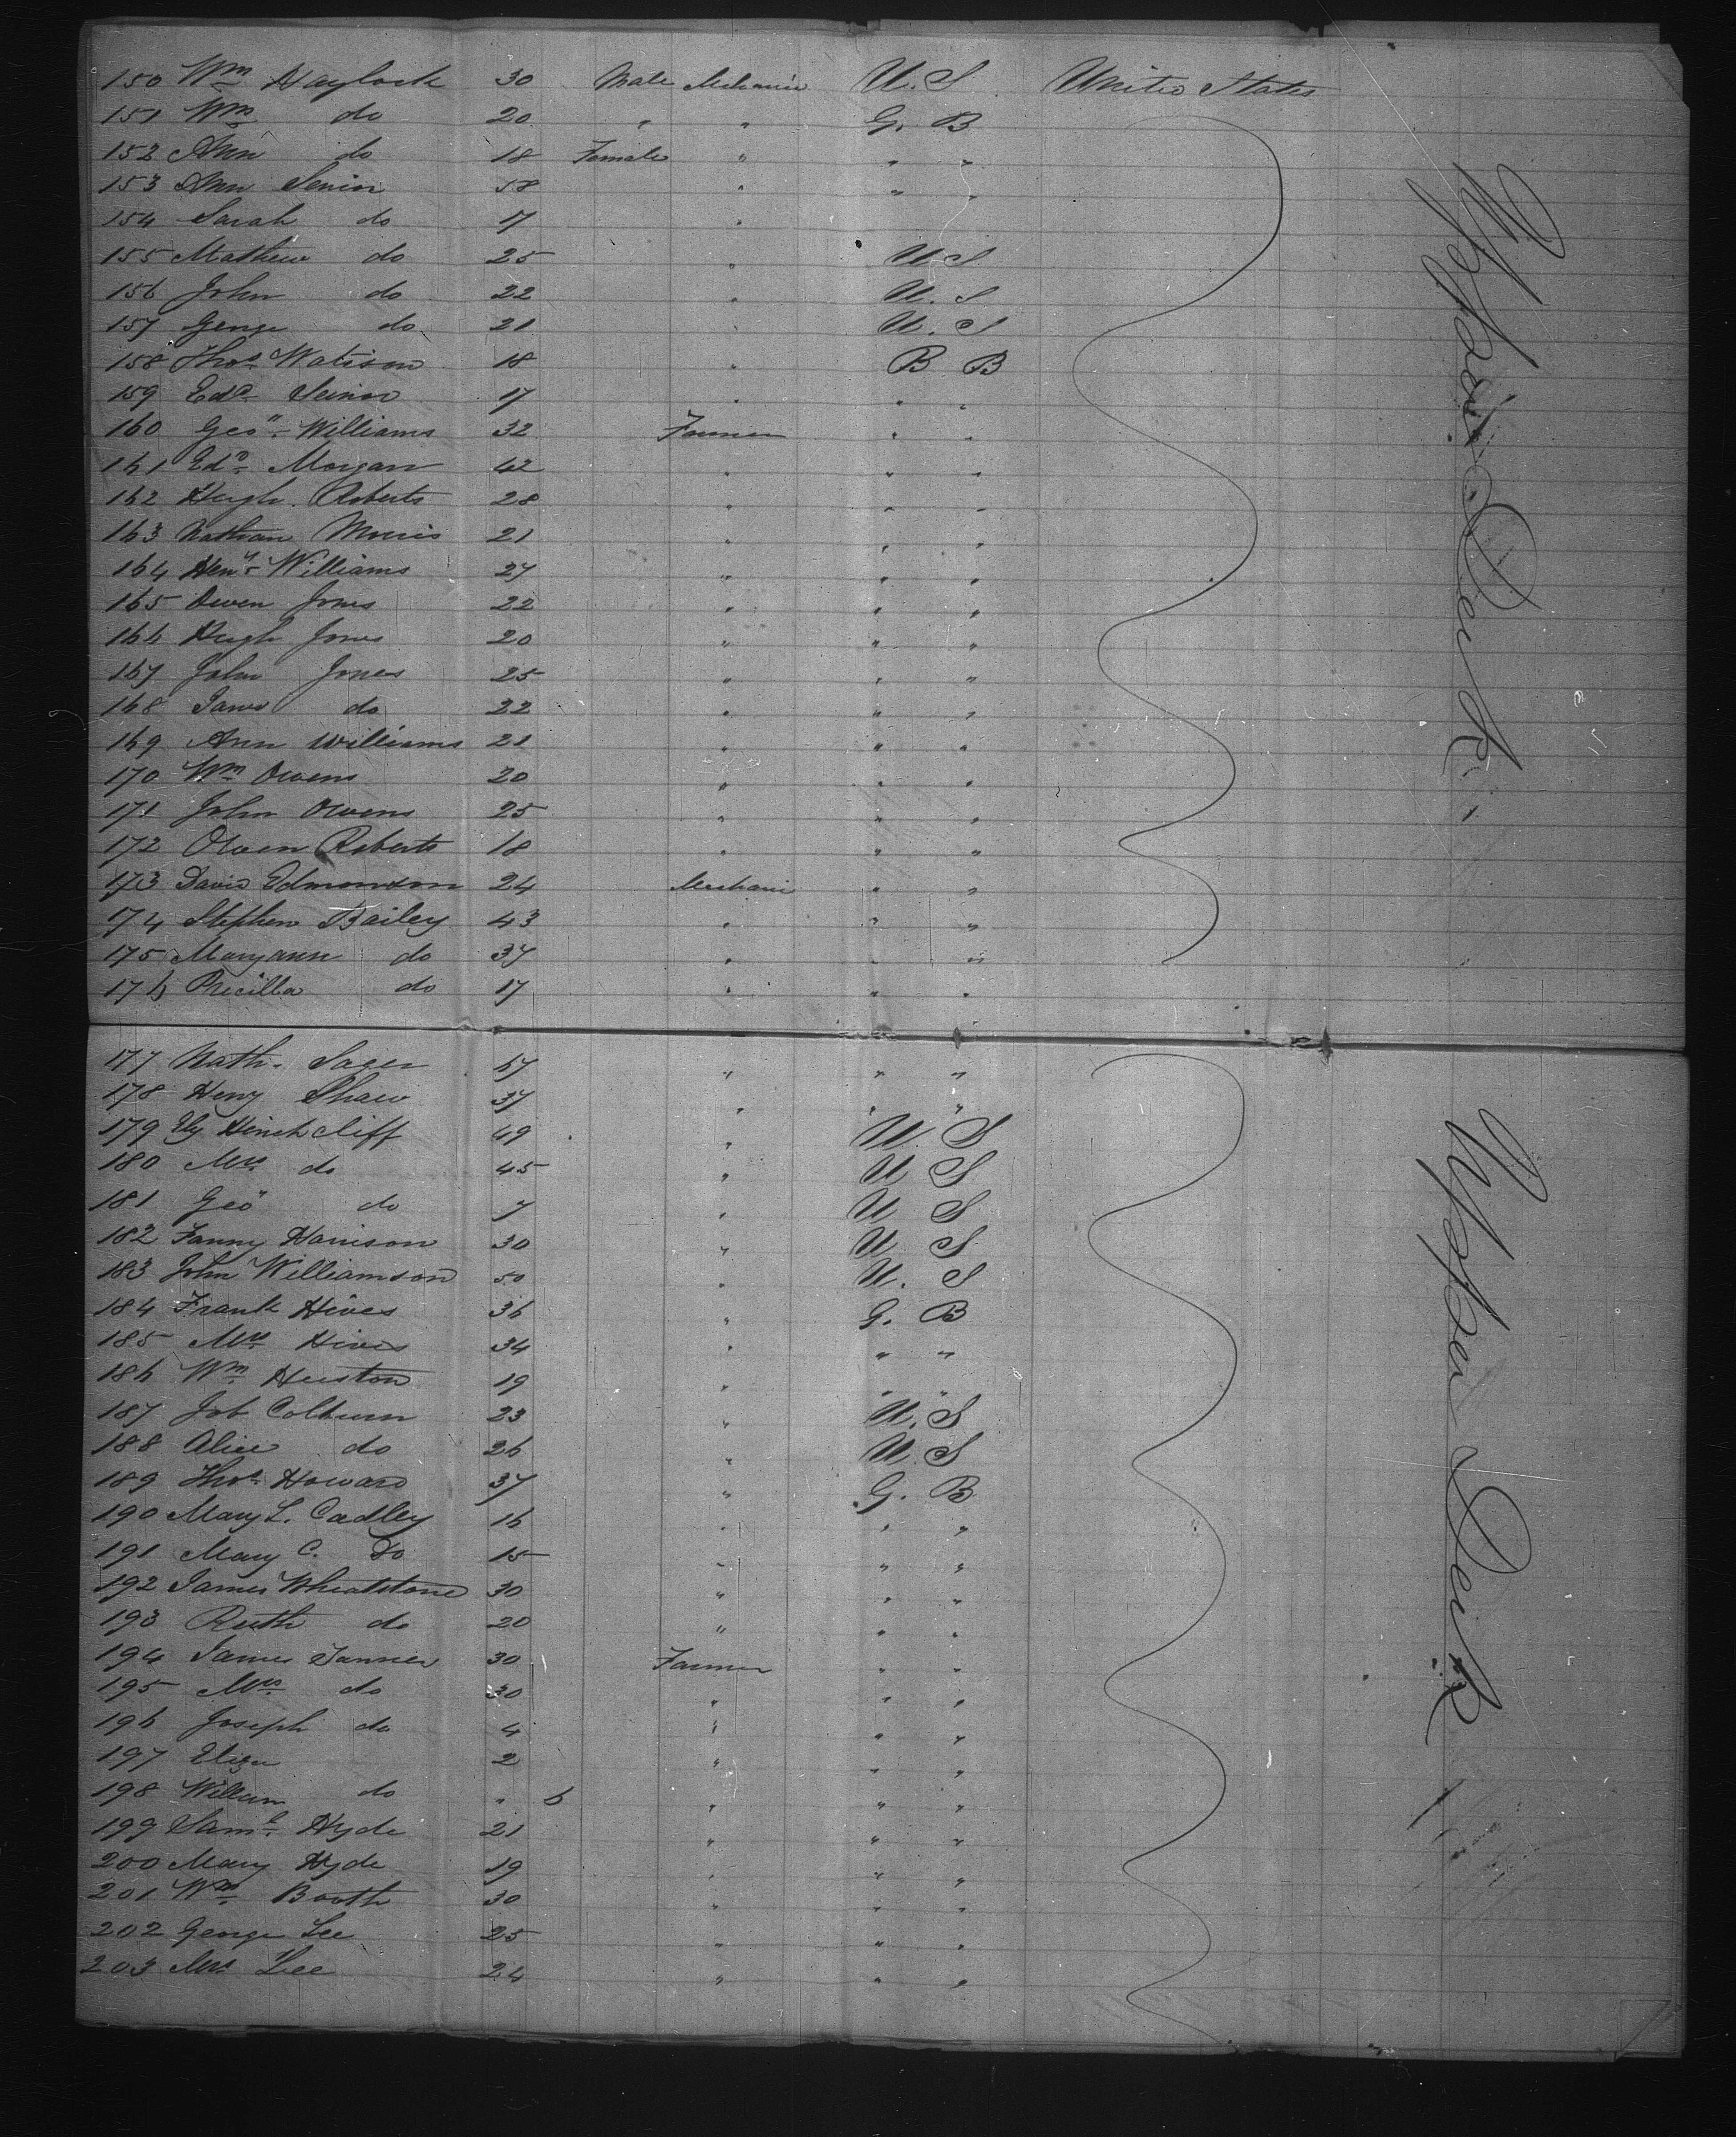 150 Wm Haylock 30 Male Mechanic U. S United States
151 Wm do 20 " " G. B
152 Ann do 18 Female " " "
153 Ann Senior 58 " " "
154 Sarah do 17 "
155 Mathew do 25 " U S
156 John do 22 " U. S
157 George do 21 " U. S
158 Thos Watison 18 " B B
159 Edd Senior 17 " " "
160 Geo Williams 32 Farmer " "
161 Edd Morgan 42 " " "
162 Hugh Roberts 28 " " "
163 Nathan Morris 21 " " "
164 Heny Williams 27 " " "
165 Owen Jones 22 " " "
166 Hugh Jones 20 " " "
167 John Jones 25 " " "
168 James do 22 " " "
169 Ann Williams 21 " " "
170 Wm Owens 20 " " "
171 John Owens 25 " " "
172 Owen Roberts 18 " " "
173 David Edmondson 24 Mechanic " "
174 Stephen Bailey 43 " " "
175 Maryann do 37 " " "
176 Pricilla do 17 " " "
Upper Deck
177 Nath. Sager 57 " " "
178 Henry Shaw 37 " " "
179 Ely Hinchcliff 49 " U S
180 Mrs do 45 " U S
181 Geo do 7 " U S
182 Fanny Harrison 30 " U S
183 John Williamson 50 " U. S
184 Frank Hives 36 " G. B
185 Mrs Hives 34 " " "
186 Wm Heuston 19 " " "
187 Job Colburn 23 " U. S
188 Alice do 26 " U S
189 Thos Howard 37 " G. B
190 Mary L. Cadley 16 " " "
191 Mary C. Do 15 " " "
192 James Wheatstone 30 " " "
193 Ruth do 20 " " "
194 James Tanner 30 Farmer " "
195 Mrs do 30 " " "
196 Joseph do 4 " " "
197 Eliza 2 " " "
198 William do " 6 " " "
199 Saml Hyde 21 " " "
200 Mary Hyde 19 " " "
201 Wm Booth 30 " " "
202 George Lee 25 " " "
203 Mrs Lee 24 " " "
Upper Deck